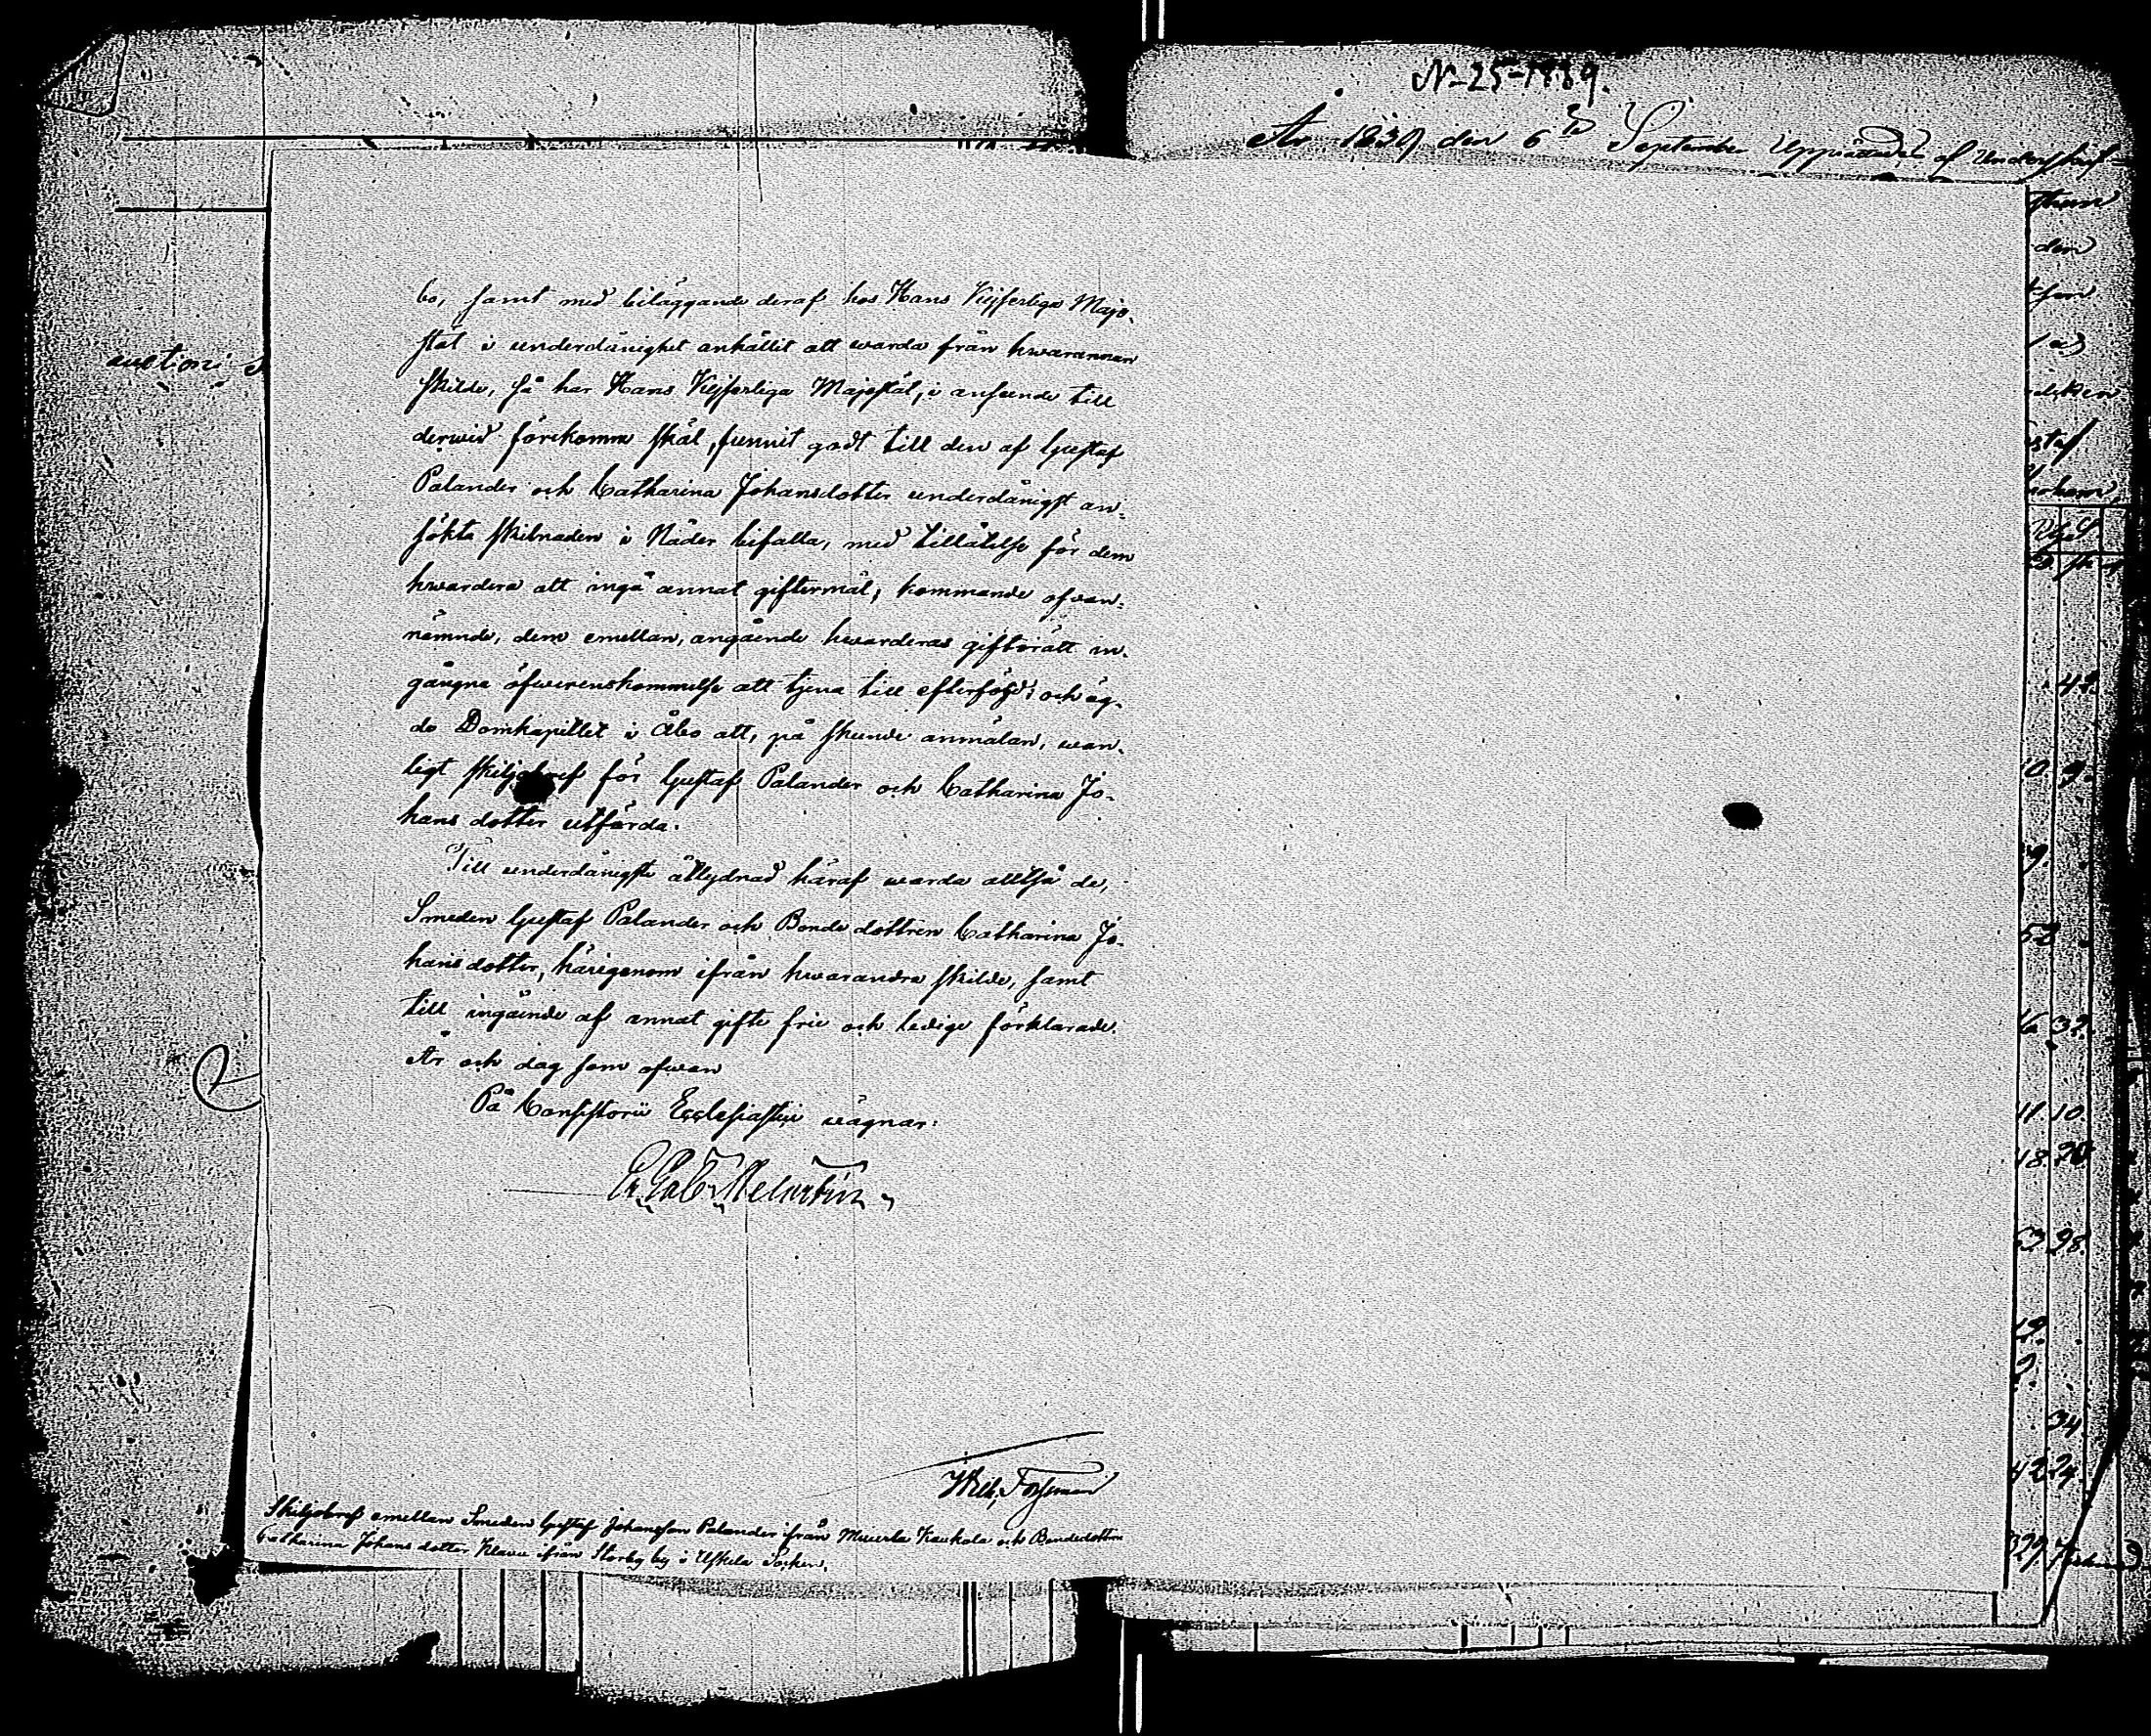 auctoni
N-25-1839.
År 1839 den 6te September Upprättades af
bo, samt med biläggande deraf hos Hans Kejserliga Maje-
stät i underdånighet anhållit att warda från hwarannan
skilde, så har Hans Kejserliga Majestät, i anseende till
derwid förekomne skäl, funnit godt till den af Gustaf
Palander och Catharina Johansdotter underdånigst an-
sökta skilnaden i Nåder bifalla, med tillåtelse för dem
hwardera att ingå annat giftermål; kommande ofwan-
nämnde, dem emellan, angående hwarderas giftorätt in-
gångna öfwerenskommelse att tjena till efterföljd; och äg-
de Domkapitlet i Åbo att, på skeende anmälan, wan-
ligt skiljobref för Gustaf Palander och Catharina Jo-
hans dotter utfärda.
Till underdånigste åtlydnad häraf warda alltså de,
Smeden Gustaf Palander och Bonde dottren Catharina Jo-
hans dotter, härigenom ifrån hwarandra skilde, samt
till ingående af annat gifte frie och ledige förklarade.
År och dag som ofwan
På Consistorii Ecclesiastici wägnar:
Er. Gab. Melartin
Wilh. Forsman
Skiljobref emellan Smeden Gustaf Johansson Palander ifrån Muurla Kaukola och Bondedottren
Catharina Johans dotter Klawu ifrån Storby by i Uskela Socken.
den
42
52
32
11 10
98
34
42 24
329